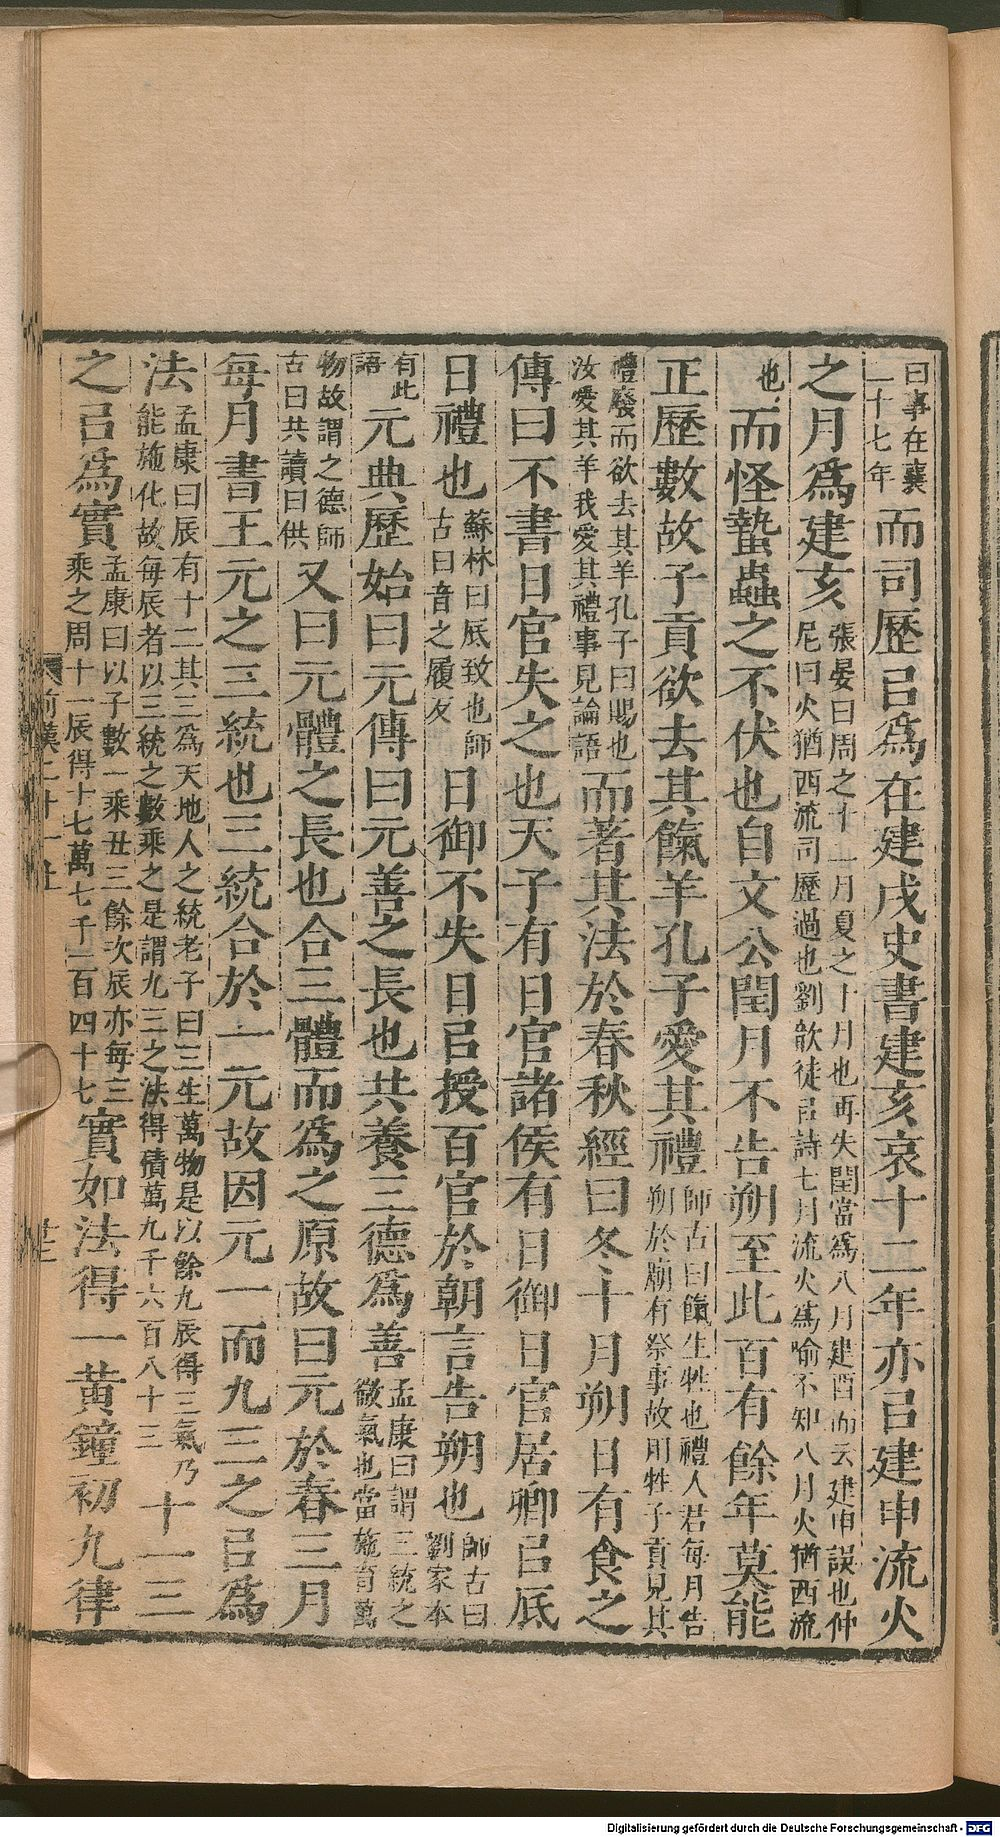 曰事在襄二十七年而司歷㠯爲在建戌史書建亥哀十二年亦㠯建申流火
之月爲建亥張晏曰周之十二月夏之十月也再失閏當爲八月建酉而云建申誤也仲尼曰火猶西流司歷過也劉歆徒㠯詩七月流火爲喻不知八月火猶西流
也而怪蟄蟲之不伏也自文公閏月不告朔至此百有餘年莫能
正歷數故子貢欲去其餼羊孔子愛其禮師古曰餼生牲也禮人君每月告朔於廟有祭事故用牲子貢見其
禮廢而欲去其羊孔子曰賜也汝愛其羊我愛其禮事見論語而著其法於春秋經曰冬十月朔日有食之
傳曰不書日官失之也天子有日官諸侯有日御日官居卿㠯底
日禮也蘇林曰底致也師古曰音之履反日御不失日㠯授百官於朝言告朔也師古曰劉家本
有此語元典歷始曰元傳曰元善之長也共養三德爲善孟康曰謂三統之微氣也當施育萬
物故謂之德師古曰共讀曰供又曰元體之長也合三體而爲之原故曰元於春三月
每月書王元之三統也三統合於一元故因元一而九三之㠯爲
法孟康曰辰有十二其三爲天地人之統老子曰三生萬物是以餘九辰得三氣乃能施化故每辰者以三統之數乘之是謂九三之法得積萬九千六百八十三十一三
之㠯爲實孟康曰以子數一乘丑三餘次辰亦每三乘之周十一辰得十七萬七千一百四十七實如法得一黃鐘初九律
前漢二十一上
Digitalisierung gefördert durch die Deutsche Forschungsgemeinschaft - DFG